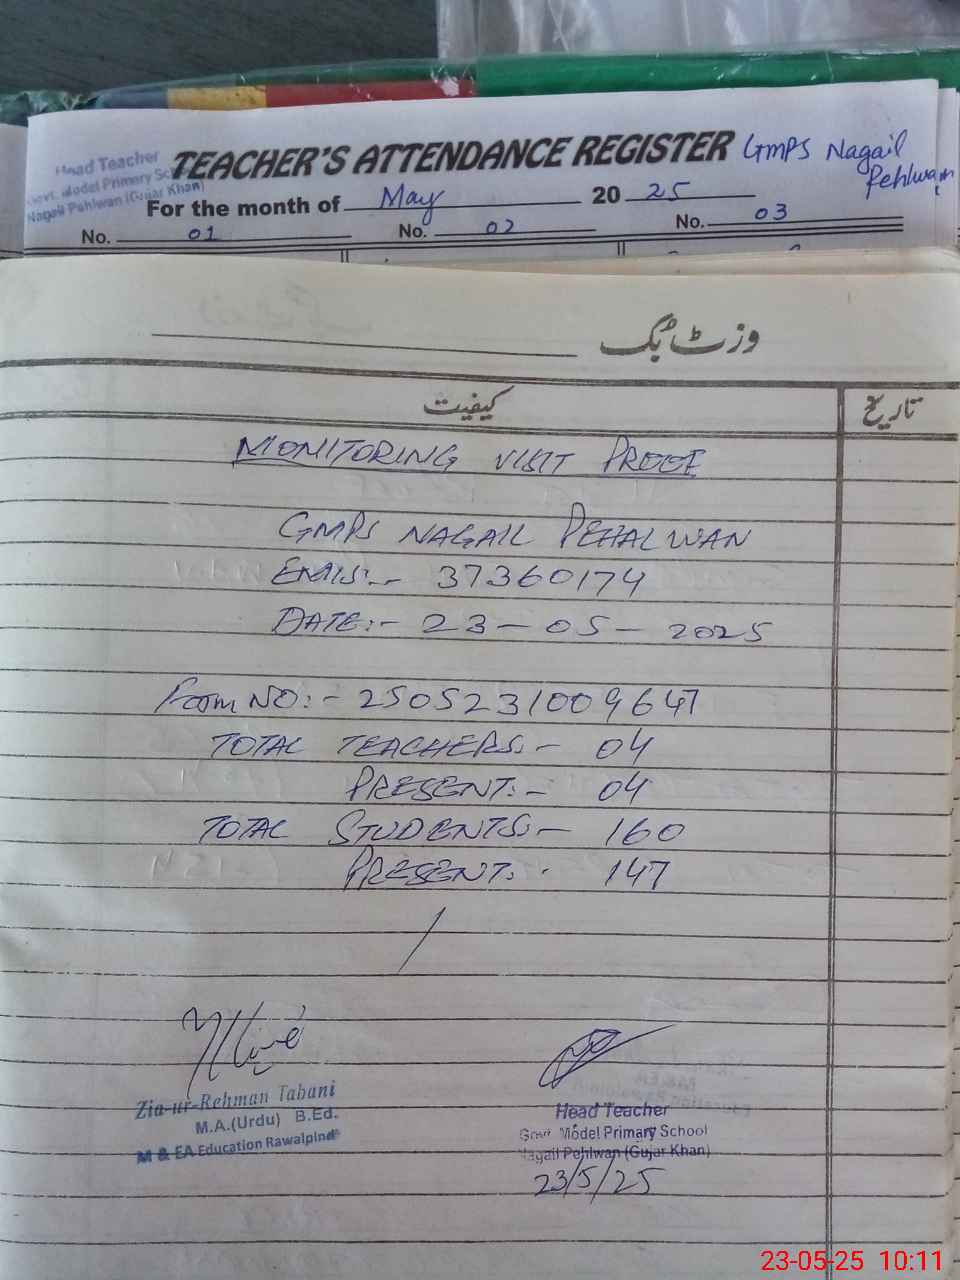 TEACHER'S ATTENDANCE REGISTER GMPS Nagail Pehlwan
Head Teacher
Govt. Model Primary School
Nagail Pehlwan (Gujar Khan)
For the month of May 2025
No. 01 No. 02 No. 03
وزٹ بک
کیفیت تاریخ
MONITORING VISIT PROOF
GMPS NAGAIL PEHALWAN
EMIS:- 37360174
DATE:- 23-05-2025
Form NO:- 2505231009647
TOTAL TEACHERS:- 04
PRESENT:- 04
TOTAL STUDENTS:- 160
PRESENT:- 147
Zia-ur-Rehman Tabani
M.A.(Urdu) B.Ed.
M & EA Education Rawalpindi
Head Teacher
Govt. Model Primary School
Nagail Pehlwan (Gujar Khan)
23/5/25
23-05-25 10:11